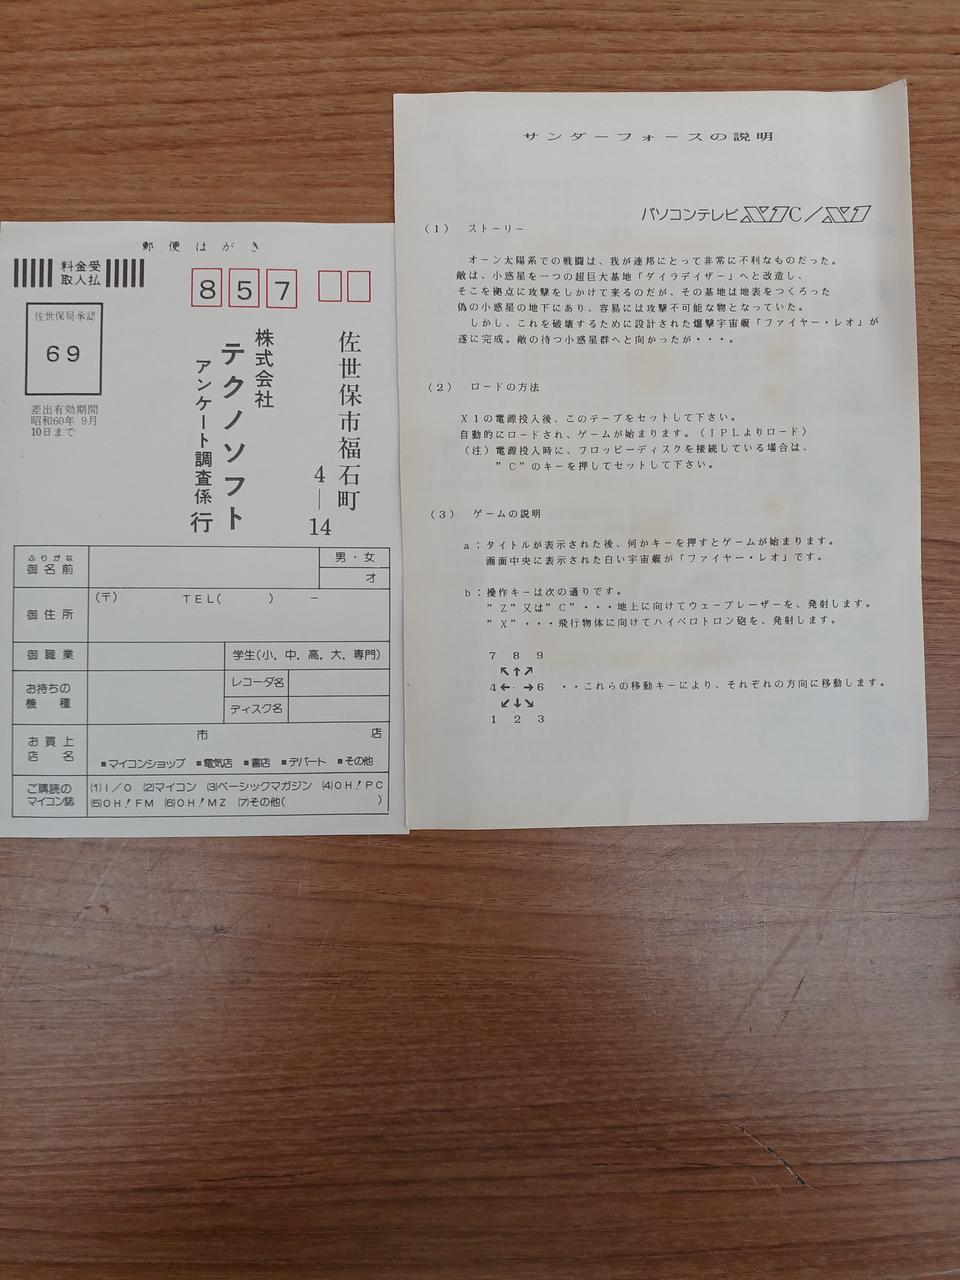 郵便はがき
料金受
取人払
857
佐世保局承認
69
差出有効期間
昭和60年 9月
10日まで
佐世保市福石町
4―14
株式会社
テクノソフト
アンケート調査係 行
ふりがな
御名前
男・女
才
御住所
(〒) TEL( ) －
御職業
学生(小．中．高．大．専門)
お持ちの
機 種
レコーダ名
ディスク名
お買上
店 名
市 店
■マイコンショップ ■電気店 ■書店 ■デパート ■その他
ご購読の
マイコン誌
(1)I／O (2)マイコン (3)ベーシックマガジン (4)OH！PC
(5)OH！FM (6)OH！MZ (7)その他( )
サンダーフォースの説明
パソコンテレビX1C／X1
(1) ストーリー
オーン太陽系での戦闘は、我が連邦にとって非常に不利なものだった。
敵は、小惑星を一つの超巨大基地「ダイラデイザー」へと改造し、
そこを拠点に攻撃をしかけて来るのだが、その基地は地表をつくろった
偽の小惑星の地下にあり、容易には攻撃不可能な物となっていた。
しかし、これを破壊するために設計された爆撃宇宙艇「ファイヤー・レオ」が
遂に完成。敵の待つ小惑星群へと向かったが・・・。
(2) ロードの方法
X1の電源投入後、このテープをセットして下さい。
自動的にロードされ、ゲームが始まります。(IPLよりロード)
(注)電源投入時に、フロッピーディスクを接続している場合は、
"C"のキーを押してセットして下さい。
(3) ゲームの説明
a：タイトルが表示された後、何かキーを押すとゲームが始まります。
画面中央に表示された白い宇宙艇が「ファイヤー・レオ」です。
b：操作キーは次の通りです。
"Z"又は"C"・・・地上に向けてウェーブレーザーを、発射します。
"X"・・・飛行物体に向けてハイペロトロン砲を、発射します。
7 8 9
↖↑↗
4←・→6 ・・これらの移動キーにより、それぞれの方向に移動します。
↙↓↘
1 2 3